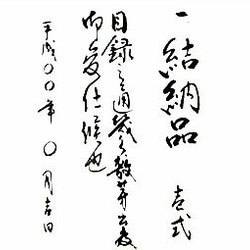 一 結納品 壱式
目録之通幾久敷芽出度
御受仕候也
平成〇〇年 〇月吉日